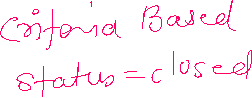 Criteria Based
status = closed